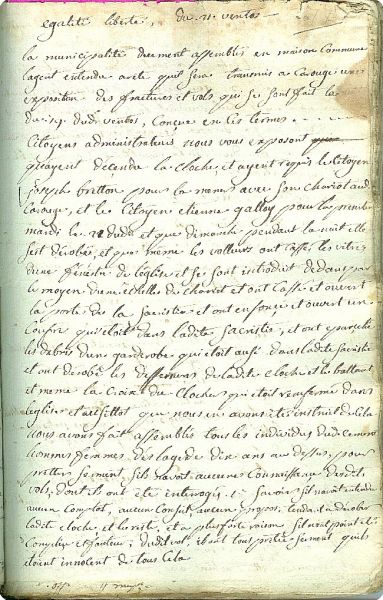 egalité liberté, du 21 ventos
la municipalité duement assemblés en maison Commune
lagent entendu arete quil sera transmis a Carouge une
exposition des fractures et vols qui se sont fait la
du 19 dudi ventos, Conçue en les termes
Citoyens administrateurs nous vous exposont
quayent décendu la Cloche, et ayent requis le Citoyen
joseph britton pour la mener avec son Chariot au
Carouge, et le Citoyen etienne gallay pour la
mardi le 21 dudi et que dimanche pendant la nuit elle
sest dérobée, et que même les volleurs ont Cassés les vitres
dune fénêtre de léglise et se sont introduit dedans par
le moyen dune échelles du Chariot et ont Cassé et ouvert
la porte de la Sacristie et ont enfoncé et ouvert un
Coffre qui étoit dans ladite Sacristie, et ont
les debris dun garderobe qui étoit ausi dans ladite Sacristie
et ont derobé les de ladite Cloche et le battant
et meme la Croix du Clocher qui étoit renfermé dans
léglise et aussittot que nous en avons étés instruit de Cela
nous avons fait assemblés tous les individus du
hommes femmes des lage de dix ans au dessus, pour
pretter serment, sils navoit aucunes Connoissance desdit
vols, dont ils ont été interrogés, Savoir sil navoit entendu
aucun Complot, aucun Conseil, aucun propos, tendant à dérober
ladite cloche et le reste, et a plus forte raison sil nest point été
Complice et fauteur, dudit vol, ils ont tous pretté serment quils
étoient innosent de tout Cela